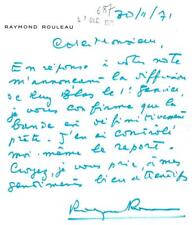 30/11/71
RAYMOND ROULEAU
DEC
Cher Monsieur,
En réponse à votre note
m'annonçant la diffusion
de Ruy Blas le 1er Janvier,
je vous confirme que la
bande est définitivement
prête. J'en ai contrôlé
moi-même le report.
Croyez, je vous prie, à mes
sentiments bien attentifs